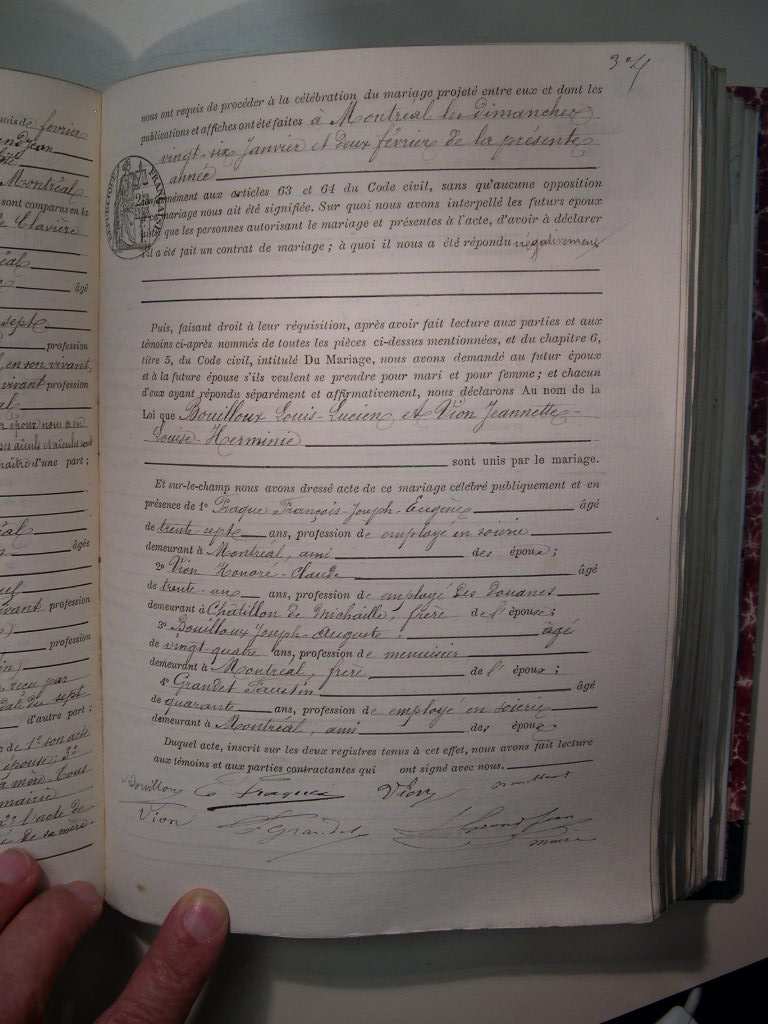 uis de février
Montréal
sont comparus en la
Clavière
éal
âgé
sept
profession
, en son vivant,
vivant profession
al
maître d'une part ;
éal
âgée
vivant profession
profession
reçu par
sept
d'autre part :
de 1° son acte
épouse ; 3°
sa mère. Tous
mairie
2° l'acte de
de sa mère.
nous ont requis de procéder à la célébration du mariage projeté entre eux et dont les
publications et affiches ont été faites à Montréal les dimanches
vingt-six Janvier et deux février de la présente
année
RÉPUBLIQUE FRANÇAISE
ormément aux articles 63 et 64 du Code civil, sans qu'aucune opposition
mariage nous ait été signifiée. Sur quoi nous avons interpellé les futurs époux
que les personnes autorisant le mariage et présentes à l'acte, d'avoir à déclarer
s'il a été fait un contrat de mariage ; à quoi il nous a été répondu négativement
Puis, faisant droit à leur réquisition, après avoir fait lecture aux parties et aux
témoins ci-après nommés de toutes les pièces ci-dessus mentionnées, et du chapitre 6,
titre 5, du Code civil, intitulé Du Mariage, nous avons demandé au futur époux
et à la future épouse s'ils veulent se prendre pour mari et pour femme ; et chacun
d'eux ayant répondu séparément et affirmativement, nous déclarons Au nom de la
Loi que Bouilloux Louis-Lucien et Vion Jeannette-
Louise-Herminie
sont unis par le mariage.
Et sur-le-champ nous avons dressé acte de ce mariage célébré publiquement et en
présence de 1° Fraque François-Joseph-Eugène âgé
de trente sept ans, profession de employé en soierie
demeurant à Montréal, ami des époux ;
2° Vion Honoré-Claude âgé
de trente-un ans, profession de employé des Douanes
demeurant à Châtillon de Michaille, frère de l'épouse ;
3° Bouilloux Joseph-Auguste âgé
de vingt quatre ans, profession de menuisier
demeurant à Montréal, frère de l'époux ;
4° Grandet Faustin âgé
de quarante ans, profession de employé en soierie
demeurant à Montréal, ami des époux
Duquel acte, inscrit sur les deux registres tenus à cet effet, nous avons fait lecture
aux témoins et aux parties contractantes qui ont signé avec nous.
Bouilloux E Fraque Vion Bouilloux
Vion F Grandet maire